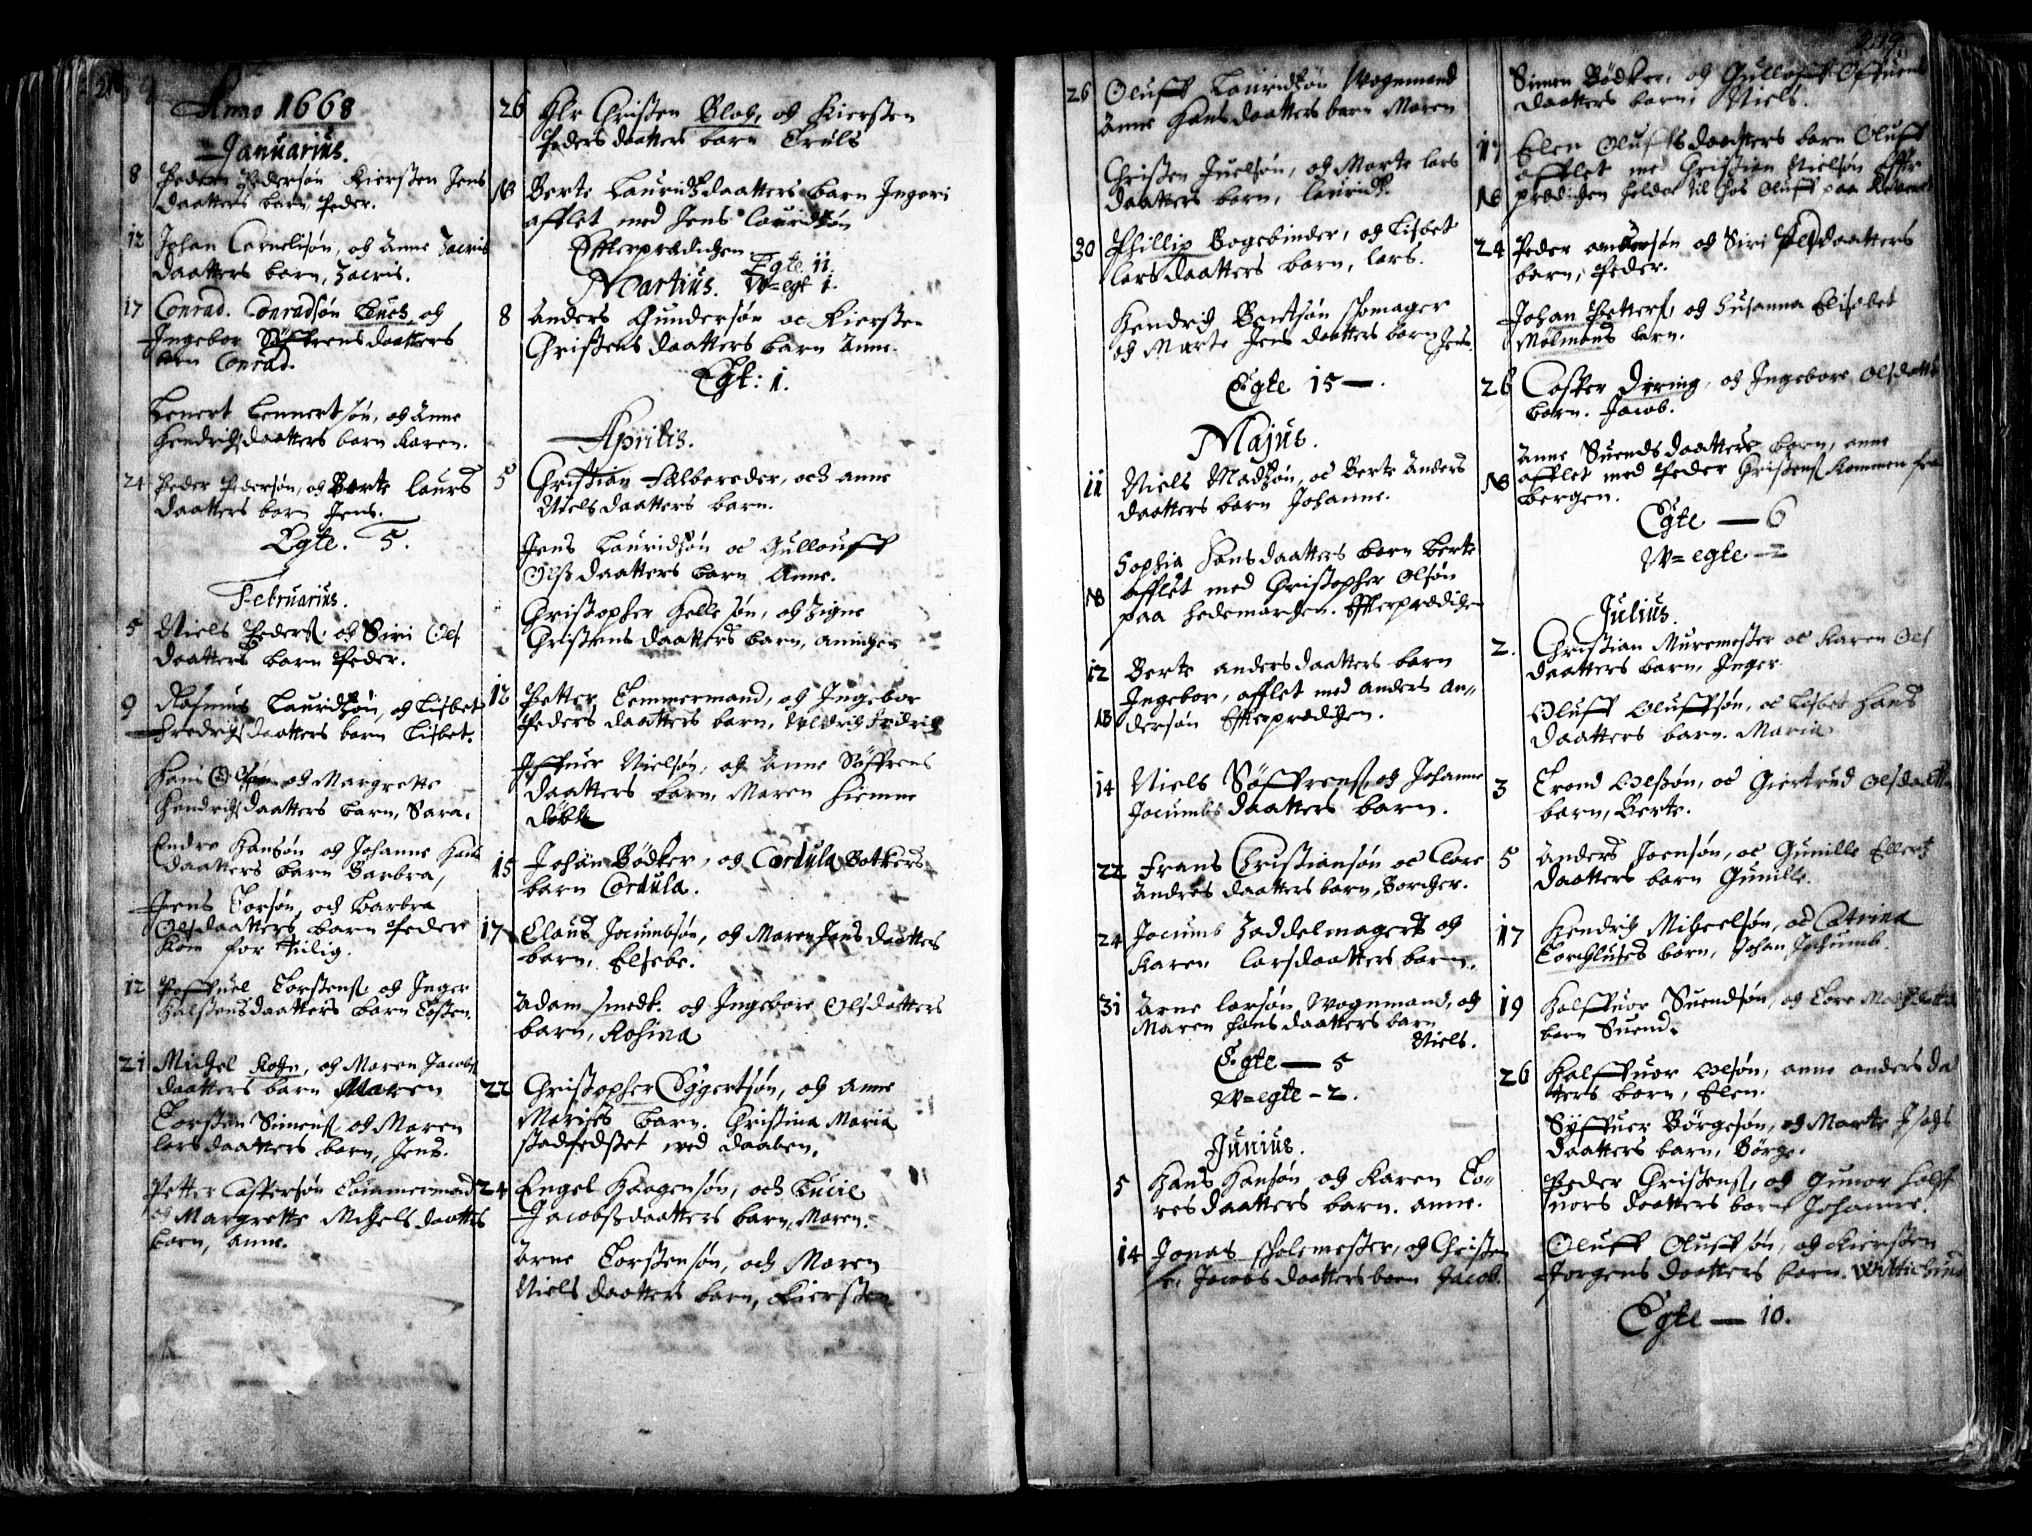 Anno 1668
Januarius.
8 Peder Pedersøn Kiersten Jens
daatters barn Peder.
12 Johan Cornelisøn, og Anne Zacris
daatters barn, Zacris.
17 Conrad. Conradsøn og
Ingebor Søffrens daatters
barn Conrad.
Lenert Lennertsøn, og Anne
Hendrichsdaatters barn Karen.
24 Peder Pedersøn, og Berte Laurs
daatters barn Jens.
Egte. 5.
Februarius.
5 Niels Peders. og Siri Ols
daatters barn Peder.
9 Rasmus Lauridzøn, og Lisbet
Fredrichsdaatters barn Lisbet.
Hans og Margrette
Hendrichsdaatters barn, Sara.
Endre Hansøn og Johanne Hans
daatters barn Barbra,
Jens Torsøn, och Barbra
Olsdaatters barn Peder
kom for tiilig.
12 Poffuel Torstens. og Inger
Halstensdaatters barn Tosten.
21 Michel og Maren Jacobs
daatters barn Maren
Torsten Simens. og Maren
Larsdaatters barn, Jens.
Petter Caspersøn Tømmermand
og Margrette Michels daatters
barn, Anne.
26 Hr Christen Bloch, og Kiersten
Peders daatters barn Truls
NB Berte Lauridz daatters barn Ingeri
afflet med Jens Lauridzøn
Efterprædichen
Egte 11.
Martius. W=egt 1.
8 Anders Gundersøn oc Kiersten
Christens daatters barn Anne.
Egt: 1.
Aprilis.
5 Christian Fælbereder, och Anne
Niels daatters barn.
Jens Lauridzøn oc Gullouff
Olss daatters barn Anne.
Christopher Hellesøn, og Signe
Christens daatters barn, Annichen
12 Petter Temmermand, og Ingebor
Peders daatters barn, Uldrich Fredrich
Iffuer Nielsøn, og Anne Søffrens
daatters barn, Maren hiemme
døbt
15 Johan Bødker, og Cordula Bottkers
barn Cordula.
17 Claus Jocumbsøn, og Maren Jens daatters
barn, Elsebe.
Adam smedt. og Ingebore Olsdatters
barn, Rosina
22 Christopher Eggertsøn, og Anne
Marises barn. Christina Maria
stadfedstet ved daaben.
24 Engel Haagensøn, och Lucie
Jacobssdaatters barn, Maren.
Arne Torstensøn, och Maren
Niels daatters barn, Kiersten
26 Oluff Lauridzøn Wognmand
Anne Hans daatters barn Maren
Christen Juelsøn, og Marte Lars
daatters barn, Lauridz.
30 Phillip Bogebinder, og Lisbet
Lars daatters barn, Lars.
Hendrich Bentsøn skomager
og Marte Jens daatters barn Jens.
Egte 15 —.
Majus.
11 Niels Madzøn, oc Berte Anders
daatters barn Johanne.
Sophia Hans daatters barn Berte
NB afflet med Christopher Olsøn
paa Hedemarchen. Efterprædichen
12 Berte Anders daatters barn
Ingebor, afflet med Anders An=
NB dersøn Efterprædichen.
14 Niels Søffrens. og Johanne
Jocumbs daatters barn.
22 Frans Christiansøn oc Clare
Andres daatters barn, Borcher.
24 Jocumb Zaddelmagers og
Karen Larsdaatters barn.
31 Arne Larsøn Wognmand, og
Maren Hans daatters barn
Niels.
Egte — 5
W=egte - 2.
Junius.
5 Hans Hansøn og Karen To=
res daatters barn. Anne.
14 Jonas skolemester, og Christen
Jacobs daatters barn Jacob.
219.
Simen Bødker, og Gulloff
daatters barn, Niels.
17 Elen Oluffs daatters barn Oluff
afflet med Christian Nielsøn Effter
NB prædichen holder til hos Oluff paa
24 Peder Andersøn og Siri daatters
barn, Peder.
Johan Petters. og Susanna Elisabet
Mølmans barn.
26 Casper Døring, og Ingebore Olsdaatters
barn. Jacob.
Anne Suends daatters barn, Anne
NB afflet med Peder Christens. kommen fra
Bergen.
Egte — 6
W=egte — 2
Julius.
2. Christian Muremester oc Karen Ols
daatters barn, Inger
Oluff Oluffsøn, oc Lisbet Hans
daatters barn. Maria
3 Trond Olssøn, oc Giertrud Olsdaatters
barn, Berte.
5 Anders Joensøn, oc Gunille Ellers
daatters barn Gunille.
17 Hendrich Micheelsøn, oc Catrina
barn, Johan Jochumb.
19 Halffuor Suendsøn, og Tore
barn Suend.
26 Halffuor Olsøn, Anne Anders da
tters barn, Elen.
Syffuer Børgesøn, og Marte
daatters barn, Børge.
Peder Christens. og Gunor Halff
uors daatters barn Johanne.
Oluff Oluffsøn, og Kiersten
Jørgens daatters barn.
Egte — 10.